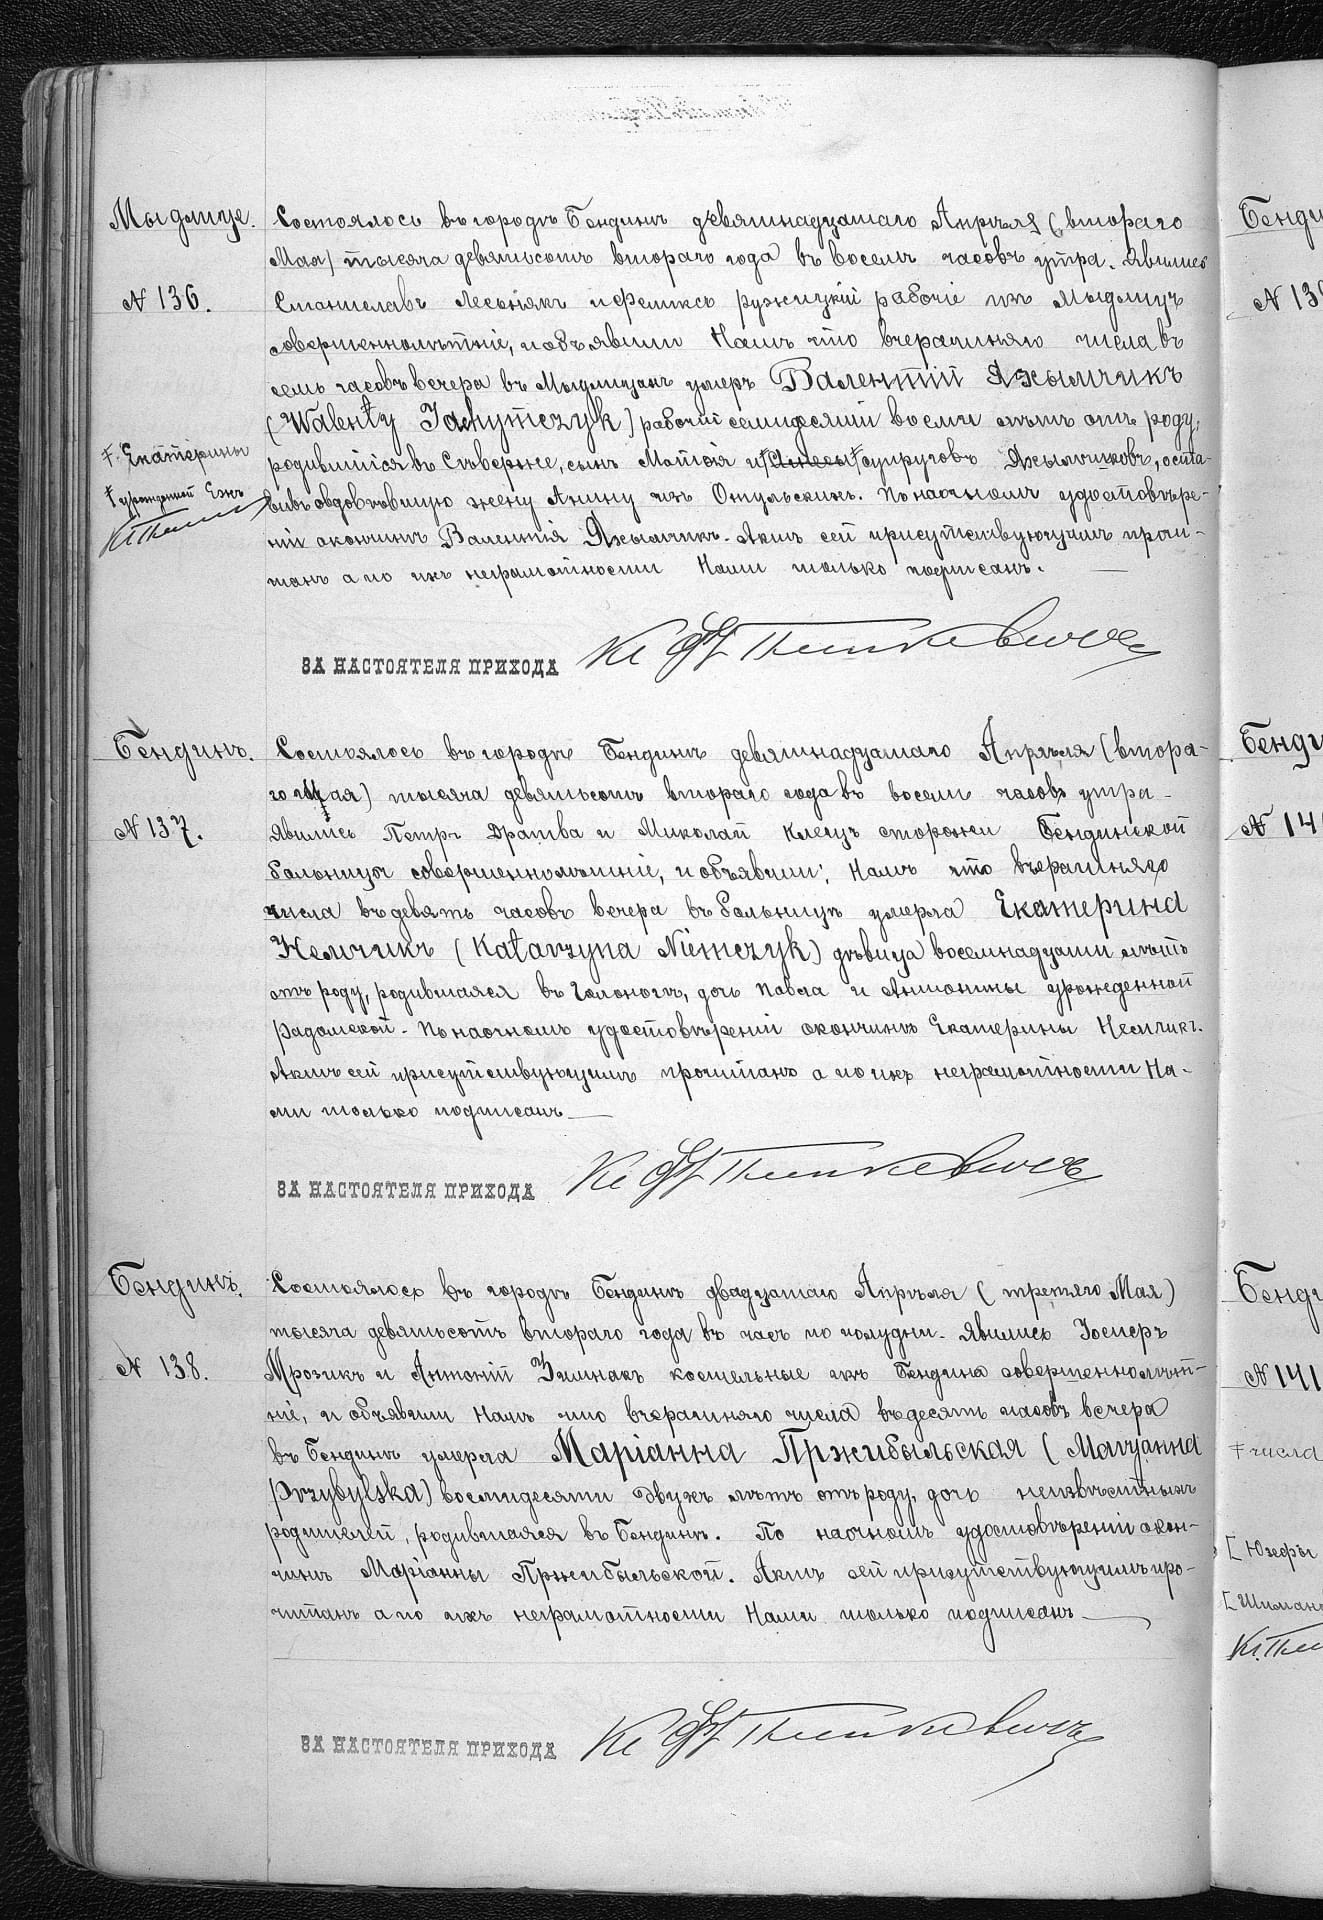 Мыдлице.
№ 136.
Состоялось въ городѣ Бендинѣ девятнадцатаго Апрѣля (втораго
Мая) тысяча девятьсотъ втораго года въ восемь часовъ утра. Явились
Станиславъ Лесьнякъ и Феликсъ Ружицкій рабочіе изъ Мыдлицъ
совершеннолѣтніе, и объявили Намъ что вчерашняго числа въ
семь часовъ вечера въ Мыдлицахъ умеръ Валентій Яхымчикъ
(Walenty Jachymczyk) рабочій семидесяти восьми лѣтъ отъ роду,
родившійся въ Сѣверже, сынъ Матѳія и супруговъ Яхымчиковъ, оста-
вивъ овдовѣвшую жену Анину изъ Опульскихъ. По наочномъ удостовѣре-
ніи окончинѣ Валентія Яхымчикъ. Актъ сей присутствующимъ прочи-
танъ а по ихъ неграмотности Нами только подписанъ.
ꞙ Екатерины
ꞙ урожденной
ЗА НАСТОЯТЕЛЯ ПРИХОДА
Бендинъ.
№ 137.
Состоялось въ городѣ Бендинѣ девятнадцатаго Апрѣля (втора-
го Мая) тысяча девятьсотъ втораго года въ восемь часовъ утра
Явились Петръ Дратва и Миколай Клецъ сторожи Бендинской
больницы совершеннолѣтніе, и объявили; Намъ что вчерашняго
числа въ девять часовъ вечера въ больницѣ умерла Екатерина
Немчикъ (Katarzyna Niemczyk) дѣвица восемнадцати лѣтъ
отъ роду, родившаяся въ Голоногѣ, дочь Павла и Антонины урожденной
Радомской. По наочномъ удостовѣреніи окончинѣ Екатерины Немчикъ.
Актъ сей присутствующимъ прочитанъ а по ихъ неграмотности На-
ми только подписанъ
ЗА НАСТОЯТЕЛЯ ПРИХОДА
Бендинъ.
№ 138.
Состоялось въ городѣ Бендинѣ двадцатаго Апрѣля (третяго Мая)
тысяча девятьсотъ втораго года въ часъ по полудни. Явились Госперъ
Мрозикъ и Антоній Зимнакъ костельные изъ Бендина совершеннолѣт-
ніе, и объявили Намъ что вчерашняго числа въ десять часовъ вечера
въ Бендинѣ умерла Маріанна Пржибыльская (Maryanna
Przybylska) восмидесяти двухъ лѣтъ отъ роду, дочь неизвѣстныхъ
родителей, родившаяся въ Бендинѣ. По наочномъ удостовѣреніи окон-
чинѣ Маріанны Пржибыльской. Актъ сей присутствующимъ про-
читанъ а по ихъ неграмотности Нами только подписанъ
ЗА НАСТОЯТЕЛЯ ПРИХОДА